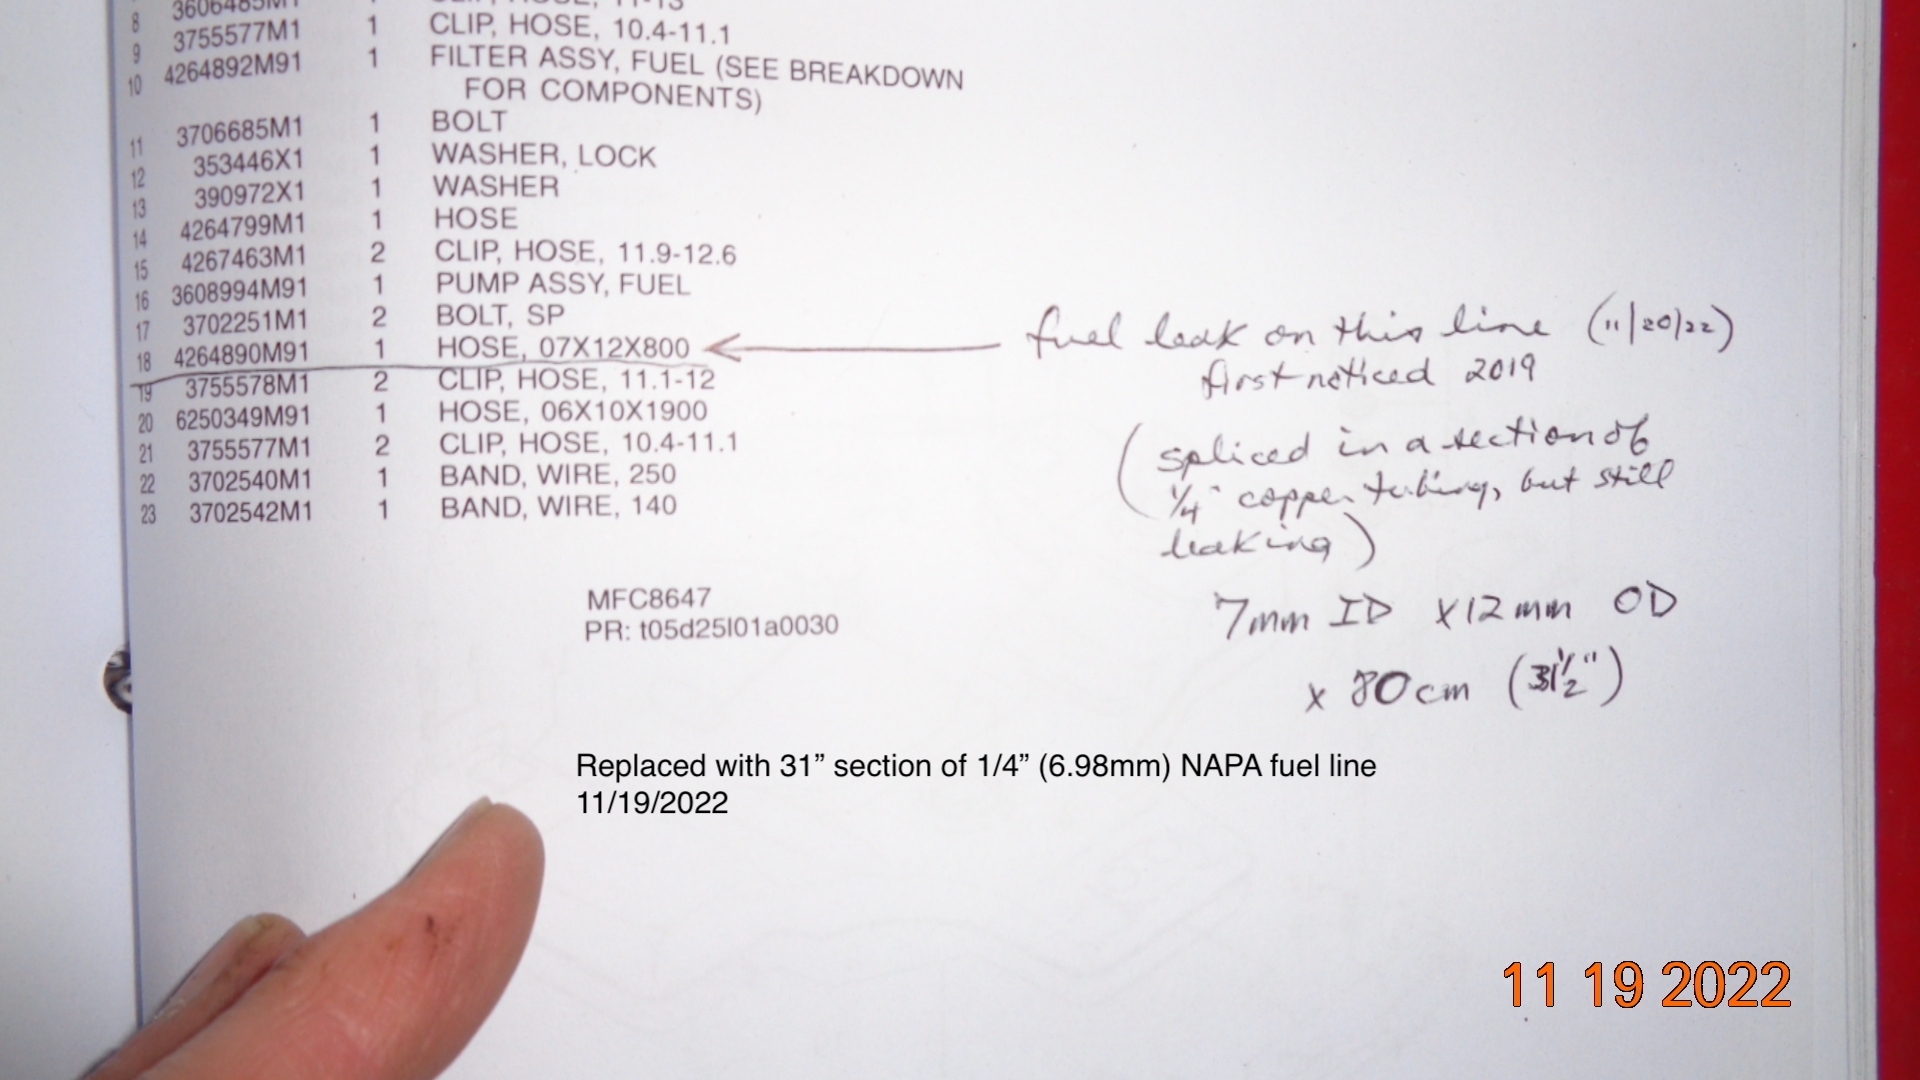 8 3606485M1 1 CLIP, HOSE, 11-13
9 3755577M1 1 CLIP, HOSE, 10.4-11.1
10 4264892M91 1 FILTER ASSY, FUEL (SEE BREAKDOWN
FOR COMPONENTS)
11 3706685M1 1 BOLT
12 353446X1 1 WASHER, LOCK
13 390972X1 1 WASHER
14 4264799M1 1 HOSE
15 4267463M1 2 CLIP, HOSE, 11.9-12.6
16 3608994M91 1 PUMP ASSY, FUEL
17 3702251M1 2 BOLT, SP
18 4264890M91 1 HOSE, 07X12X800
19 3755578M1 2 CLIP, HOSE, 11.1-12
20 6250349M91 1 HOSE, 06X10X1900
21 3755577M1 2 CLIP, HOSE, 10.4-11.1
22 3702540M1 1 BAND, WIRE, 250
23 3702542M1 1 BAND, WIRE, 140
fuel leak on this line (11/20/22)
first noticed 2019
(spliced in a section of
1/4" copper tubing, but still
leaking)
7mm ID x12mm OD
x 80cm (31 1/2")
MFC8647
PR: t05d25l01a0030
Replaced with 31” section of 1/4” (6.98mm) NAPA fuel line
11/19/2022
11 19 2022